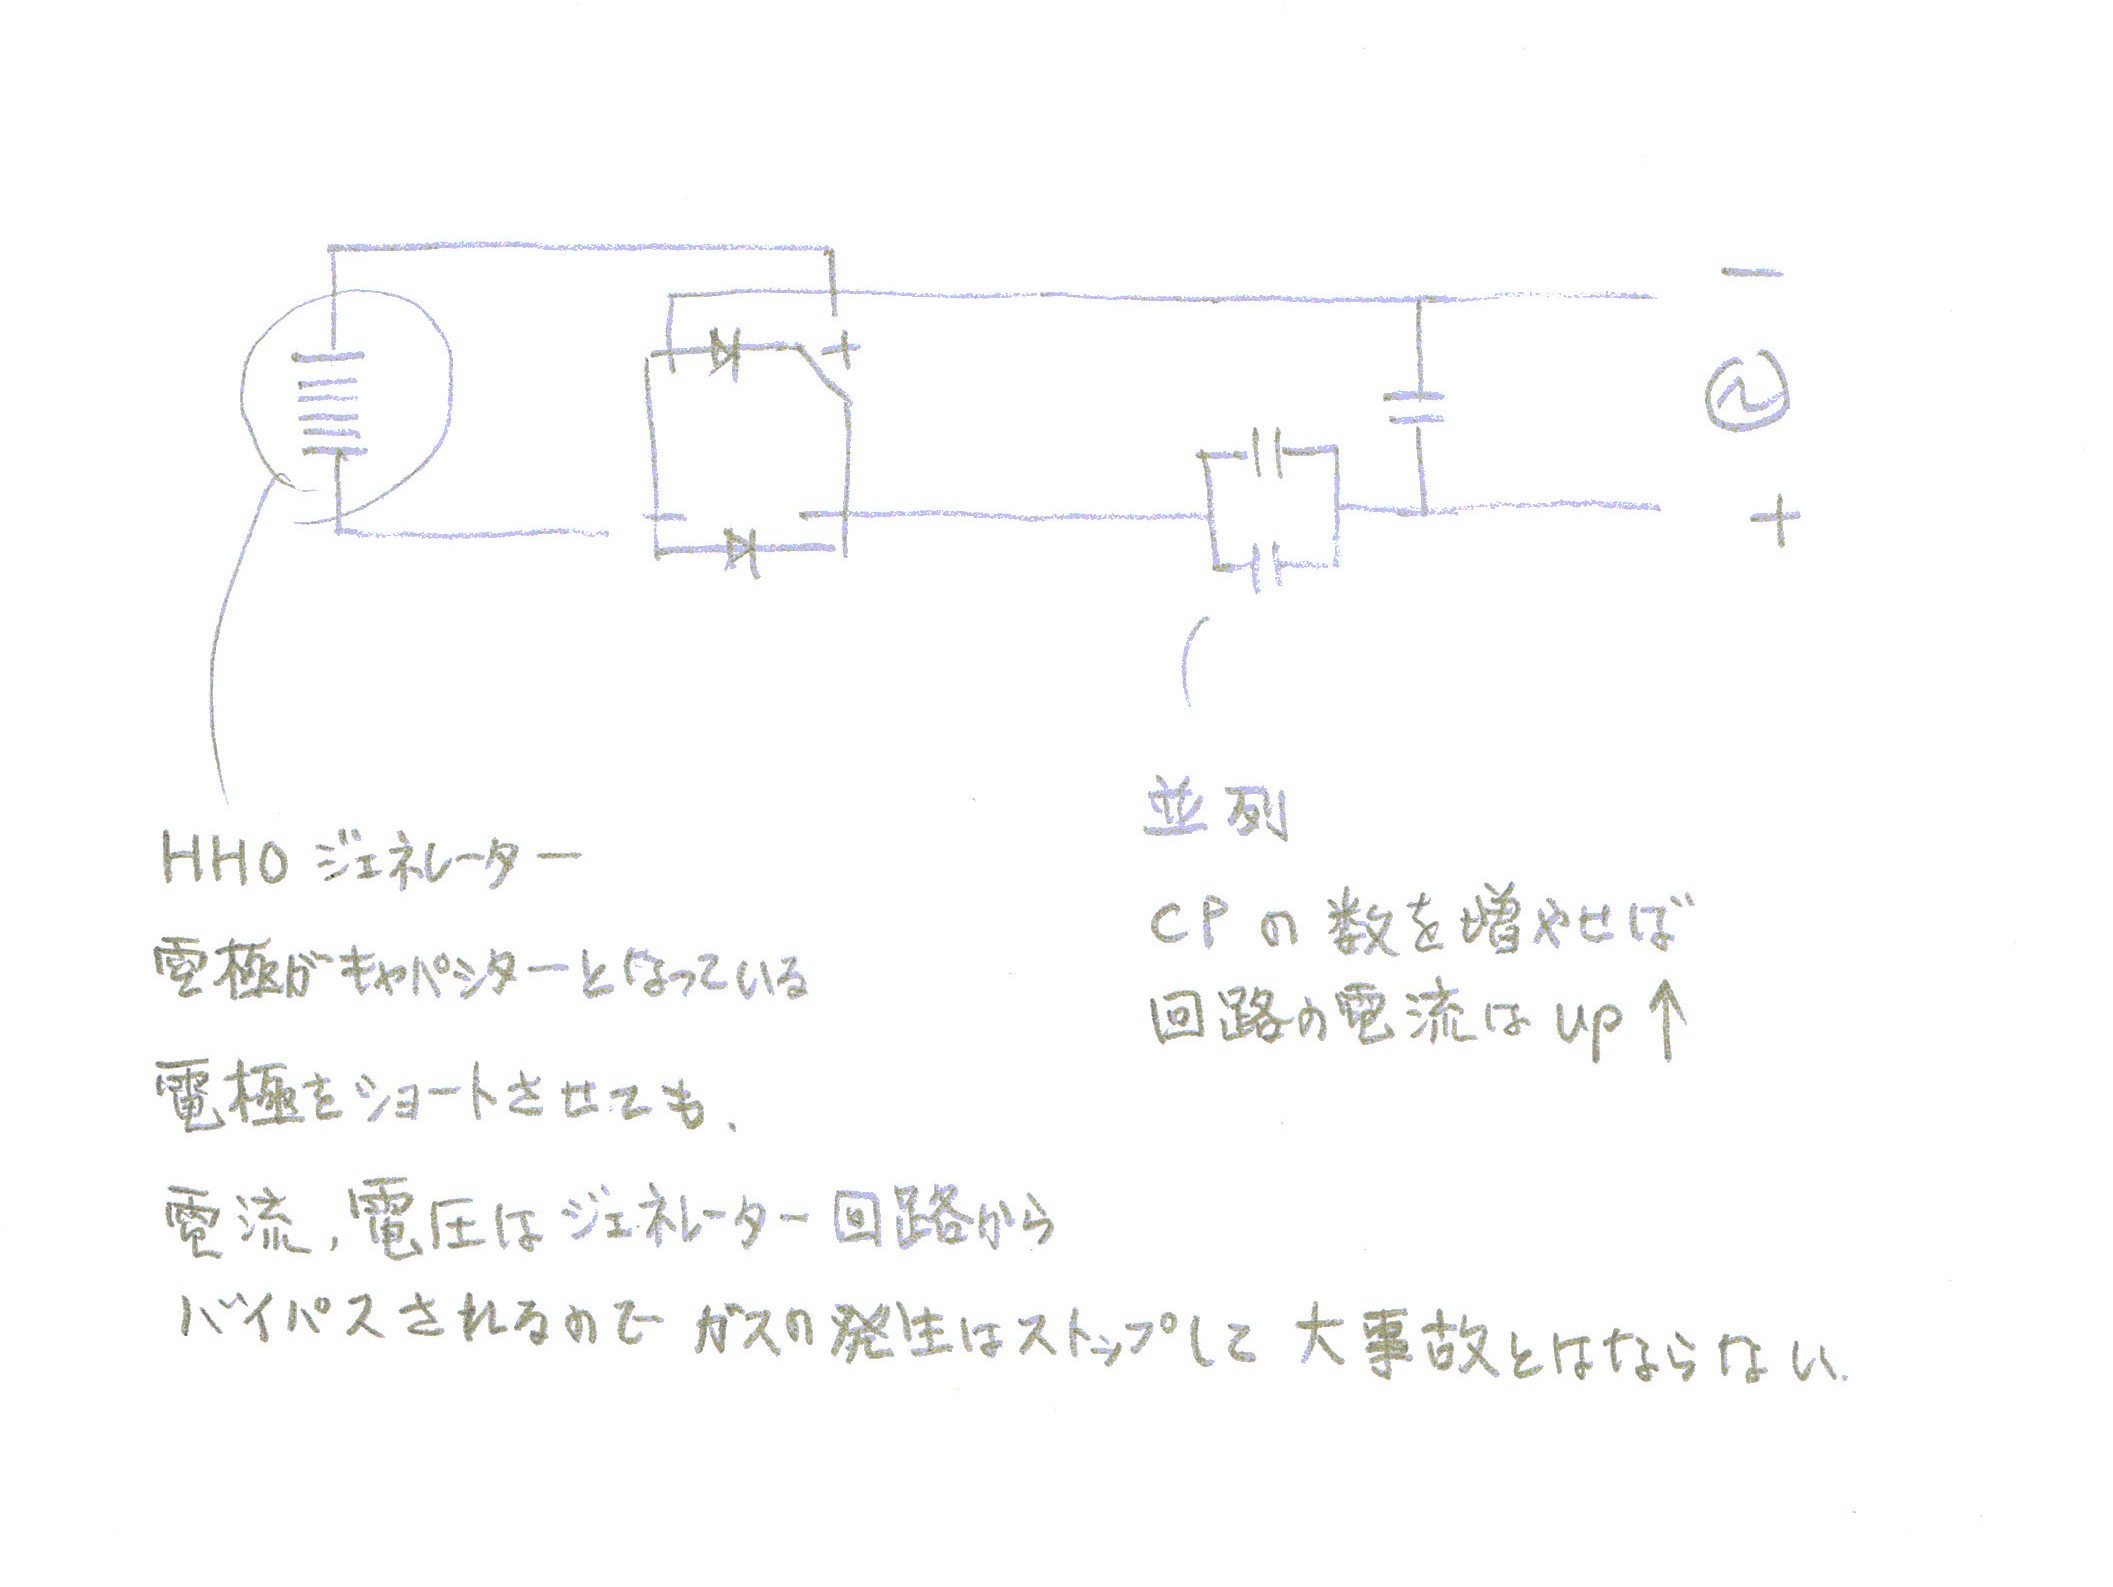 −
+
+
HHO ジェネレーター
電極がキャパシターとなっている
電極をショートさせても、
電流、電圧はジェネレーター回路から
バイパスされるので ガスの発生はストップして 大事故とはならない.
並列
CPの数を増やせば
回路の電流は up ↑